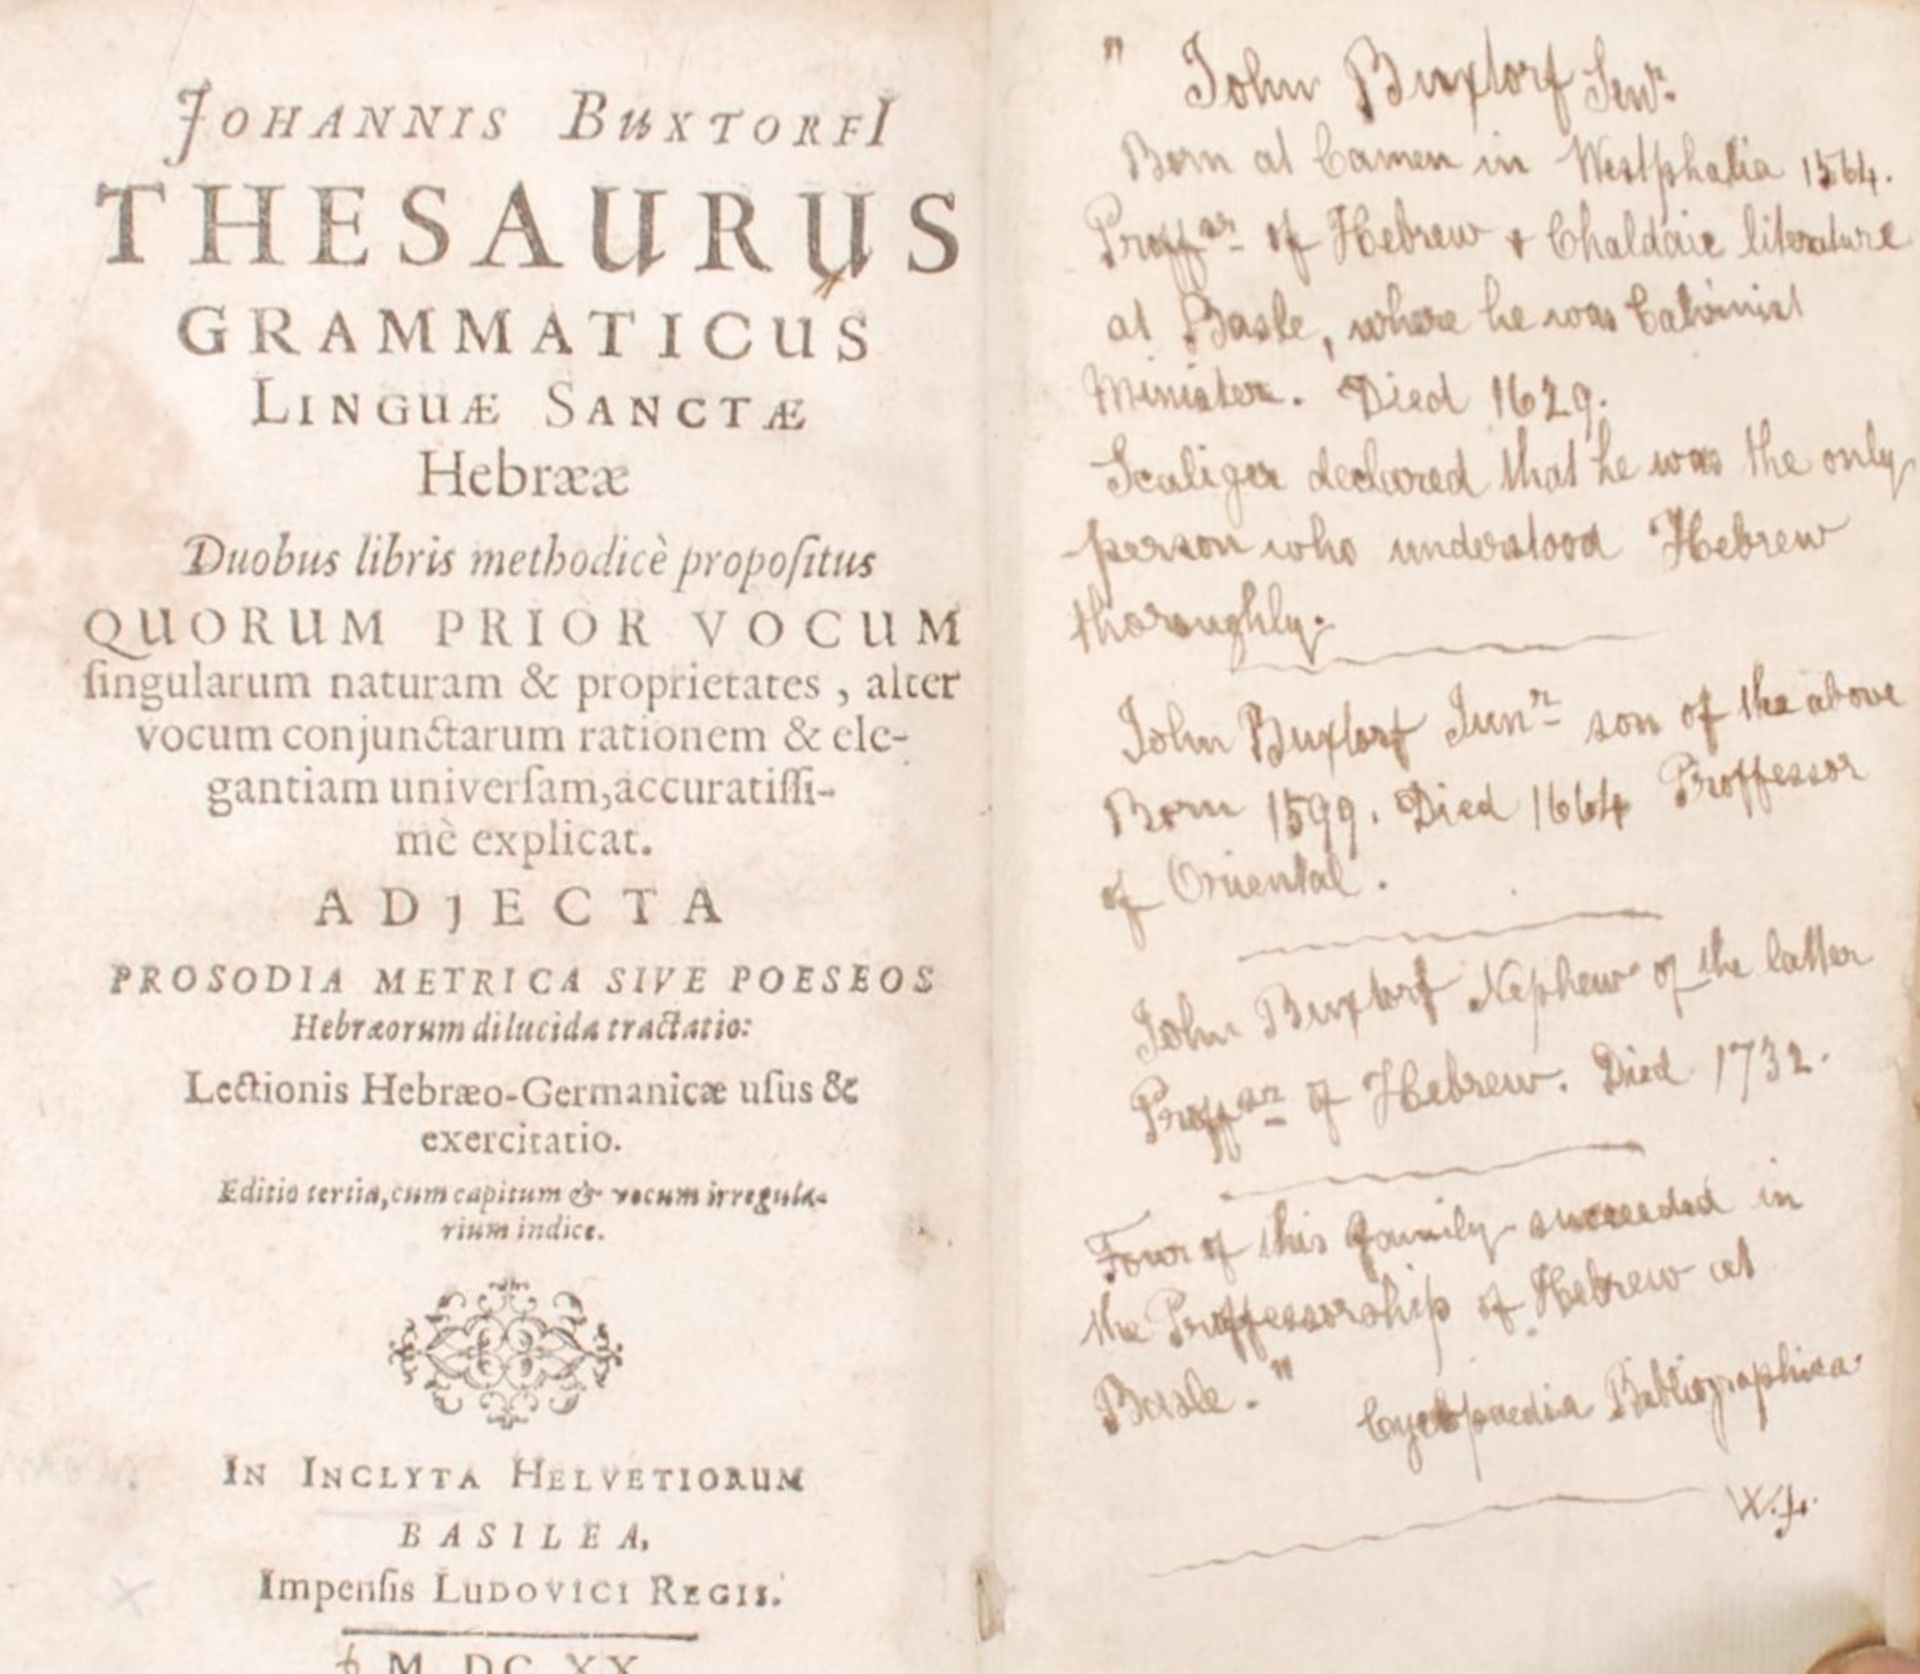 JOHANNIS BUXTORFI
THESAURUS
GRAMMATICUS
LINGUÆ SANCTÆ
Hebrææ
Duobus libris methodicè propoſitus
QUORUM PRIOR VOCUM
ſingularum naturam & proprietates, alter
vocum conjunctarum rationem & ele-
gantiam univerſam, accuratiſſi-
mè explicat.
ADJECTA
PROSODIA METRICA SIVE POESEOS
Hebræorum dilucida tractatio:
Lectionis Hebræo-Germanicæ uſus &
exercitatio.
Editio tertia, cum capitum & vocum irregula-
rium indice.
IN INCLYTA HELVETIORUM
BASILEA,
Impenſis LUDOVICI REGIS.
M DC XX
" John Buxtorf Senr.
Born at Camen in Westphalia 1564.
Proffsr of Hebrew & Chaldaic literature
at Basle, where he was Calvinist
Minister. Died 1629.
Scaliger declared that he was the only
person who understood Hebrew
thoroughly.
John Buxtorf Junr son of the above
Born 1599. Died 1664 Proffessor
of Oriental.
John Buxtorf Nephew of the latter
Proffsr of Hebrew. Died 1732.
Four of this family succeeded in
the Proffessorship of Hebrew at
Basle. "
Cyclopaedia Bibliographica